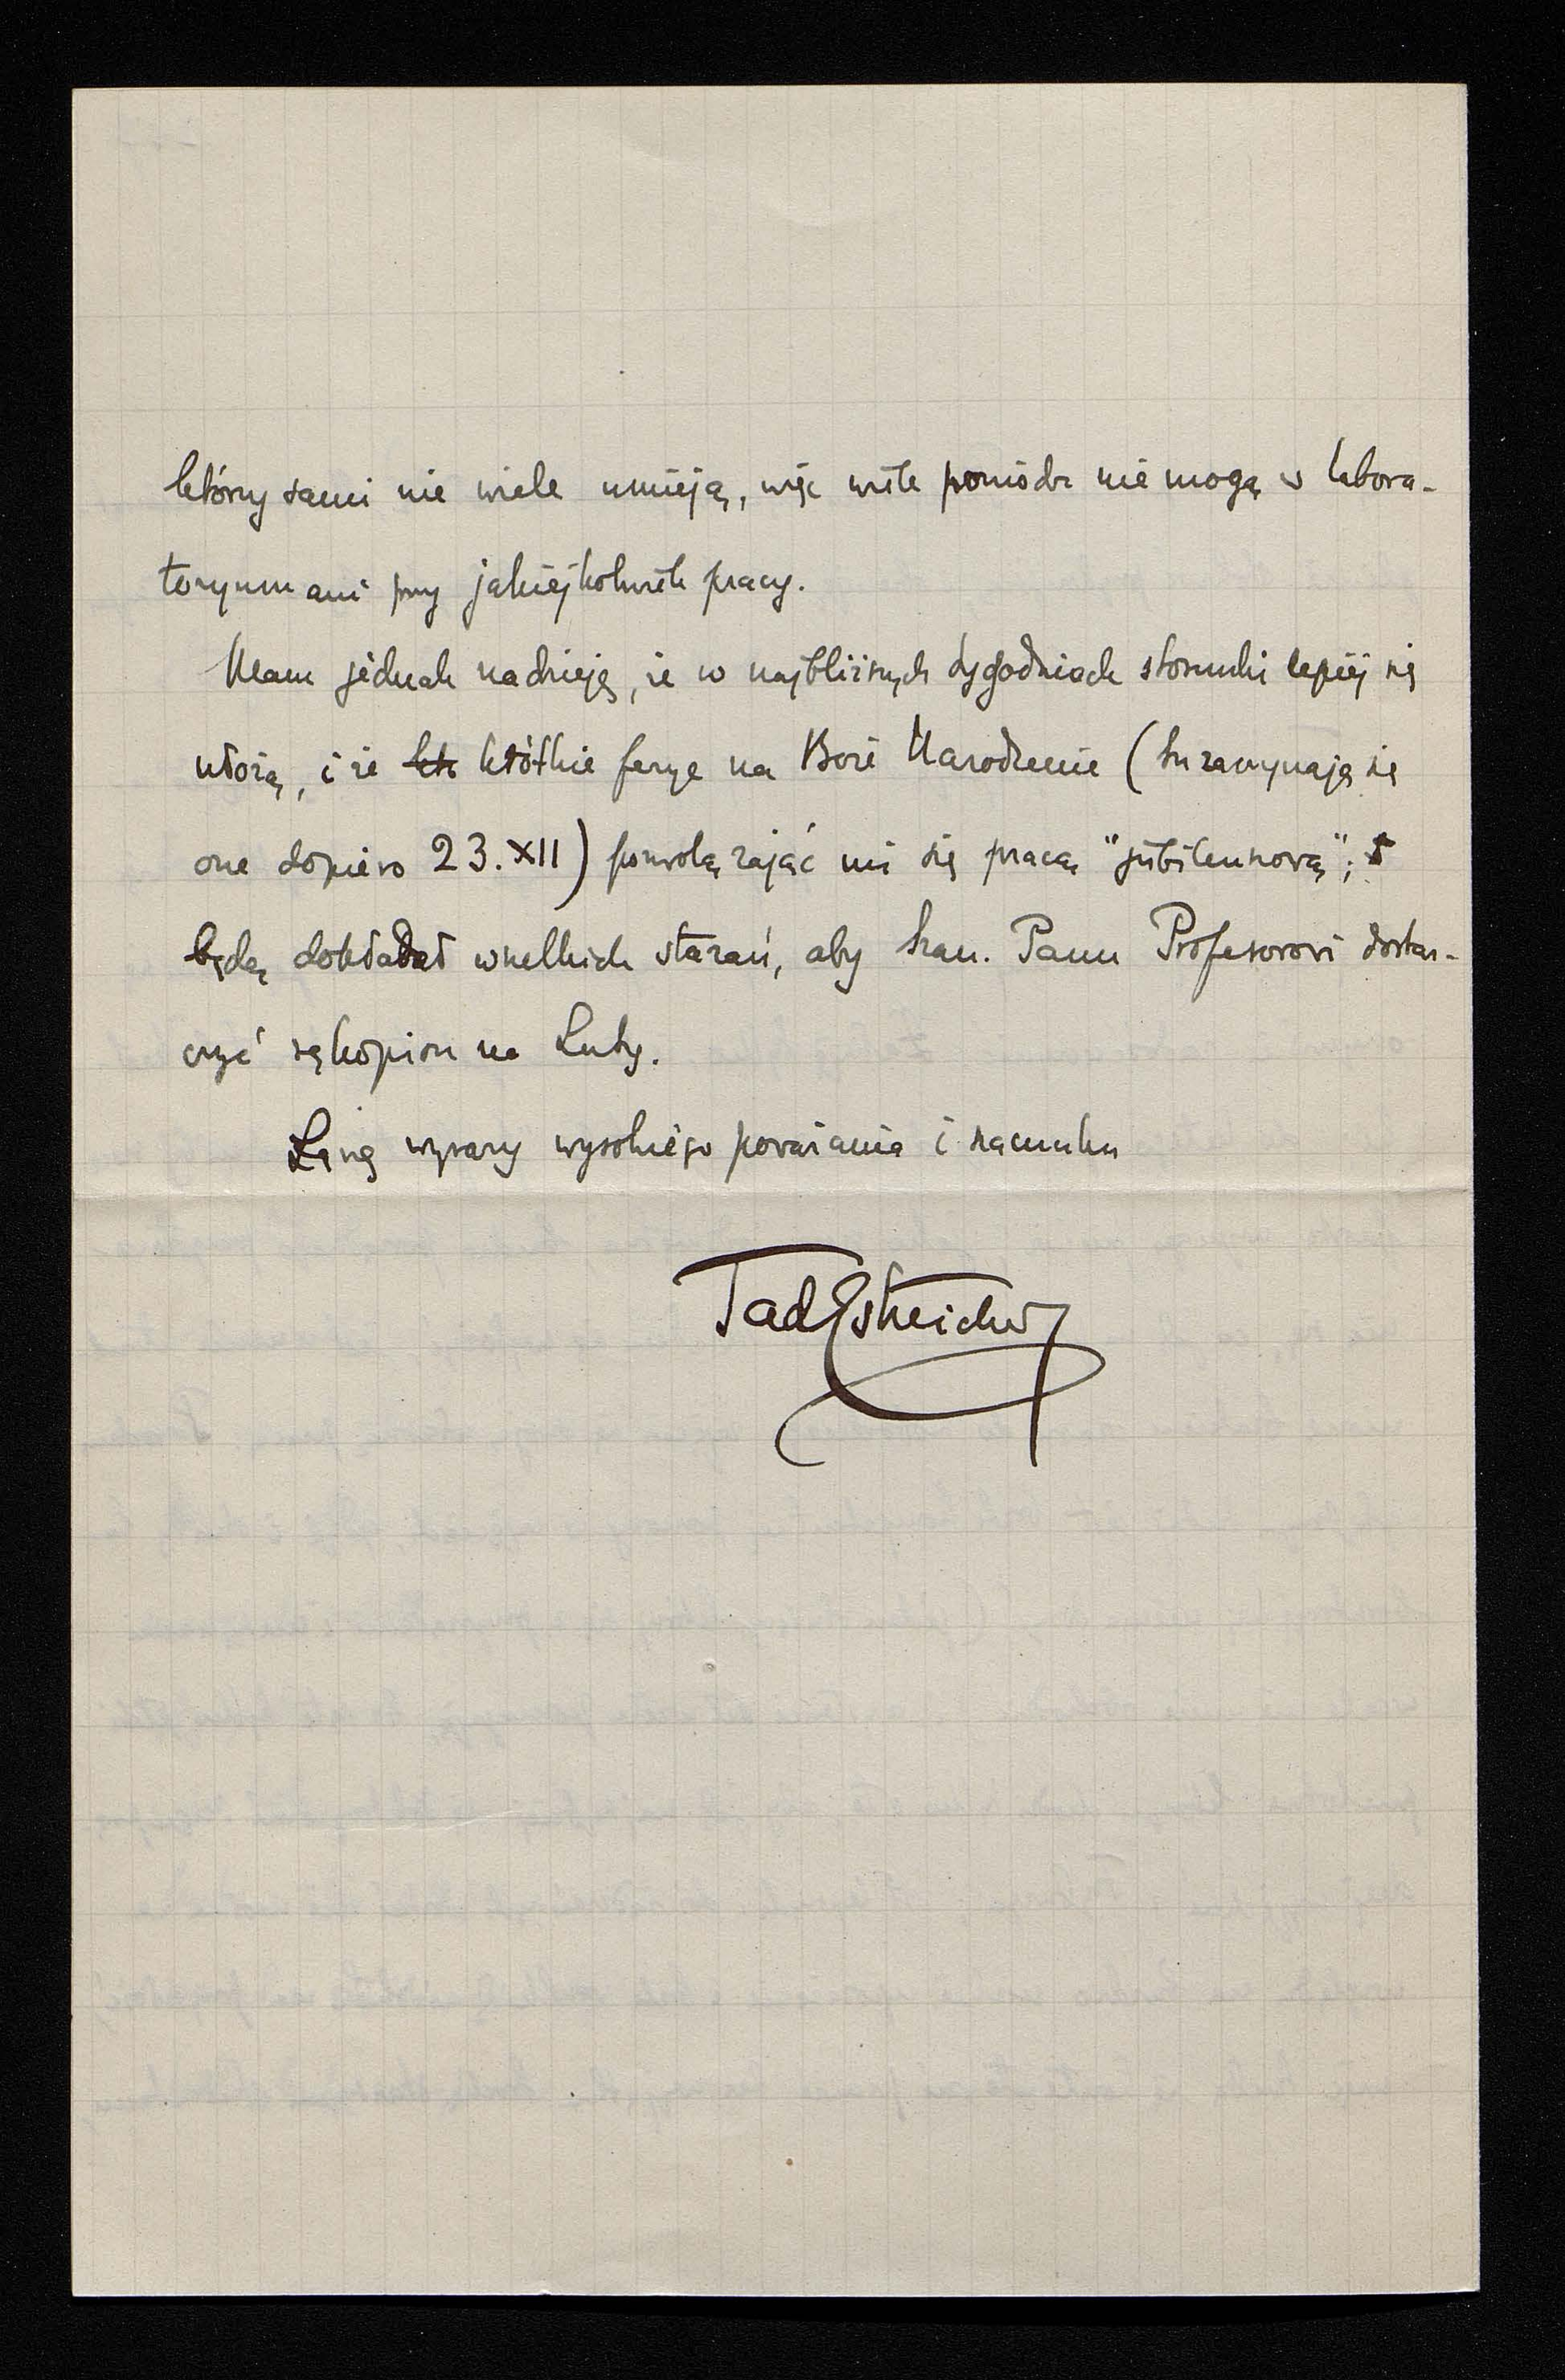 którzy sami nie wiele umieją, więc wiele pomódz nie mogą w labora-
toryum ani przy jakiejkolwiek pracy.
Mam jednak nadzieję, że w najbliższych tygodniach stosunki lepiej się
ułożą, i że krótkie ferye na Boże Narodzenie (tu zaczynają się
one dopiero 23.XII) pozwolą zająć mi się pracą "jubileuszową";
będę dokładał wszelkich starań, aby Szan. Panu Profesorowi dostar-
czyć rękopisu na Luty.
Łączę wyrazy wysokiego poważania i szacunku
TadEstreicher